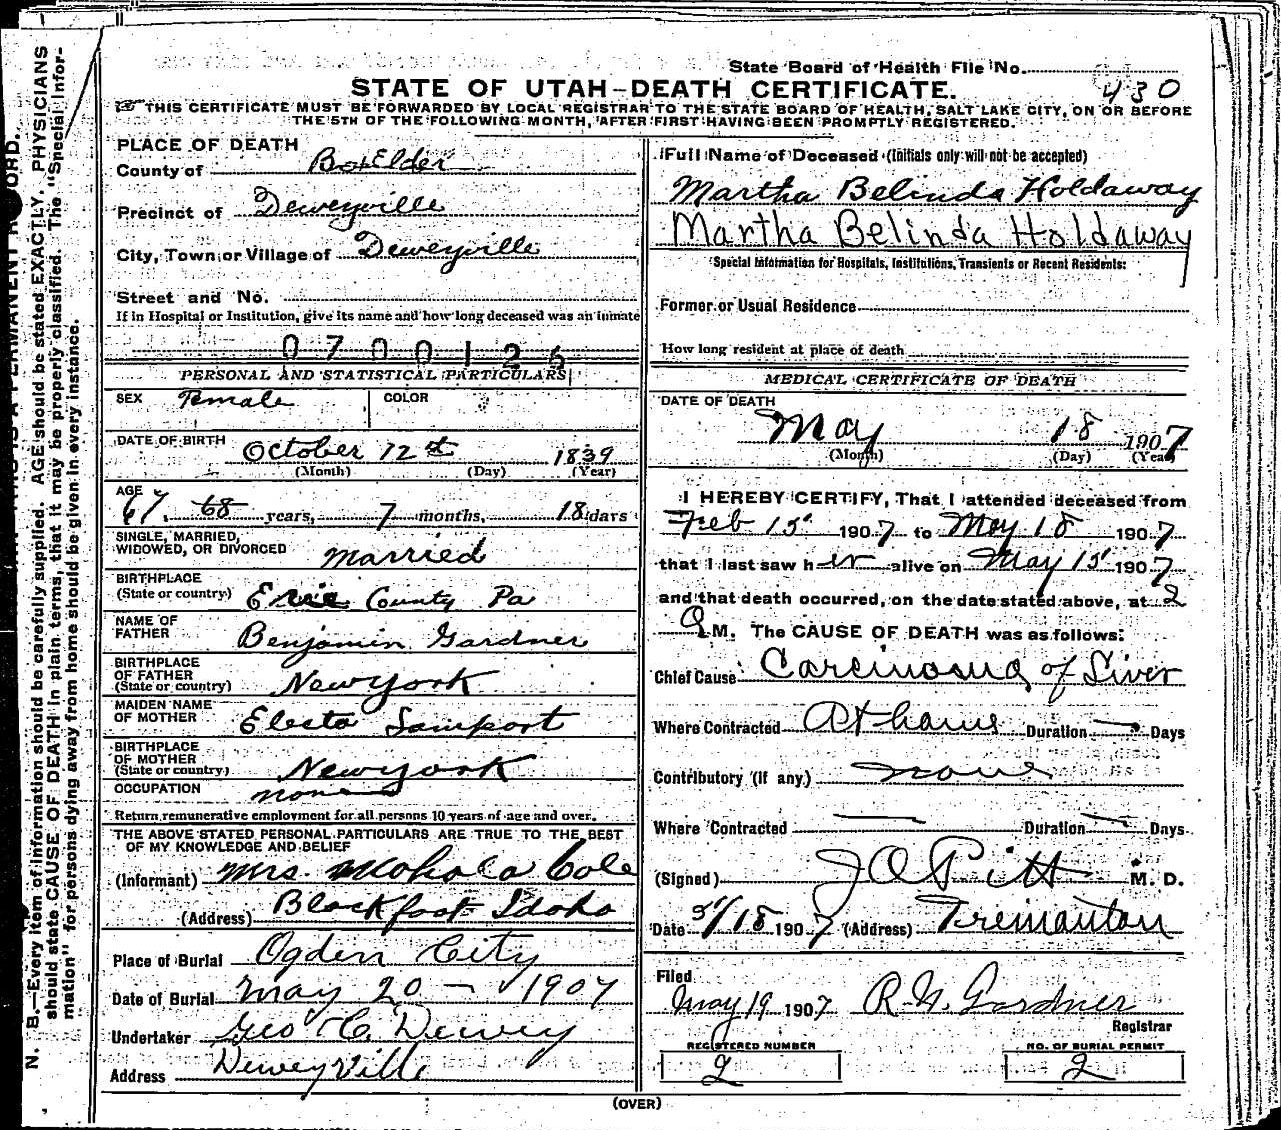 State Board of Health File No. 430
STATE OF UTAH–DEATH CERTIFICATE.
THIS CERTIFICATE MUST BE FORWARDED BY LOCAL REGISTRAR TO THE STATE BOARD OF HEALTH, SALT LAKE CITY, ON OR BEFORE
THE 5TH OF THE FOLLOWING MONTH, AFTER FIRST HAVING BEEN PROMPTLY REGISTERED.
PLACE OF DEATH
County of BoxElder
Precinct of Deweyville
City, Town or Village of Deweyville
Street and No.
If in Hospital or Institution, give its name and how long deceased was an inmate
0700126
PERSONAL AND STATISTICAL PARTICULARS
SEX Female COLOR
DATE OF BIRTH October 12th 1839
(Month) (Day) (Year)
AGE 67 68 years, 7 months, 18 days
SINGLE, MARRIED,
WIDOWED, OR DIVORCED married
BIRTHPLACE
(State or country) Erie County Pa
NAME OF
FATHER Benjamin Gardner
BIRTHPLACE
OF FATHER
(State or country) New york
MAIDEN NAME
OF MOTHER Electa Lamport
BIRTHPLACE
OF MOTHER
(State or country) New york
OCCUPATION none
Return remunerative employment for all persons 10 years of age and over.
THE ABOVE STATED PERSONAL PARTICULARS ARE TRUE TO THE BEST
OF MY KNOWLEDGE AND BELIEF
(Informant) Mrs. Cole
(Address) Blackfoot Idaho
Place of Burial Ogden City
Date of Burial May 20 – 1907
Undertaker Geo C. Dewey
Address Deweyville
Full Name of Deceased (Initials only will not be accepted)
Martha Belinda Holdaway
Martha Belinda Holdaway
Special Information for Hospitals, Institutions, Transients or Recent Residents:
Former or Usual Residence
How long resident at place of death
MEDICAL CERTIFICATE OF DEATH
DATE OF DEATH
May 18 1907
(Month) (Day) (Year)
I HEREBY CERTIFY, That I attended deceased from
Feb 15 1907 to May 18 1907
that I last saw her alive on May 15 1907
and that death occurred, on the date stated above, at 2
a M. The CAUSE OF DEATH was as follows:
Chief Cause Carcinoma of Liver
Where Contracted At home Duration — Days
Contributory (if any) none
Where Contracted — Duration — Days
(Signed) J O Pitt M. D.
Date 5/18 1907 (Address) Tremonton
Filed
May 19 1907 R. N. Gardner
Registrar
REGISTERED NUMBER NO. OF BURIAL PERMIT
2 2
(OVER)
N. B.—Every item of information should be carefully supplied. AGE should be stated EXACTLY. PHYSICIANS
should state CAUSE OF DEATH in plain terms, that it may be properly classified. The "Special Infor-
mation" for persons dying away from home should be given in every instance.